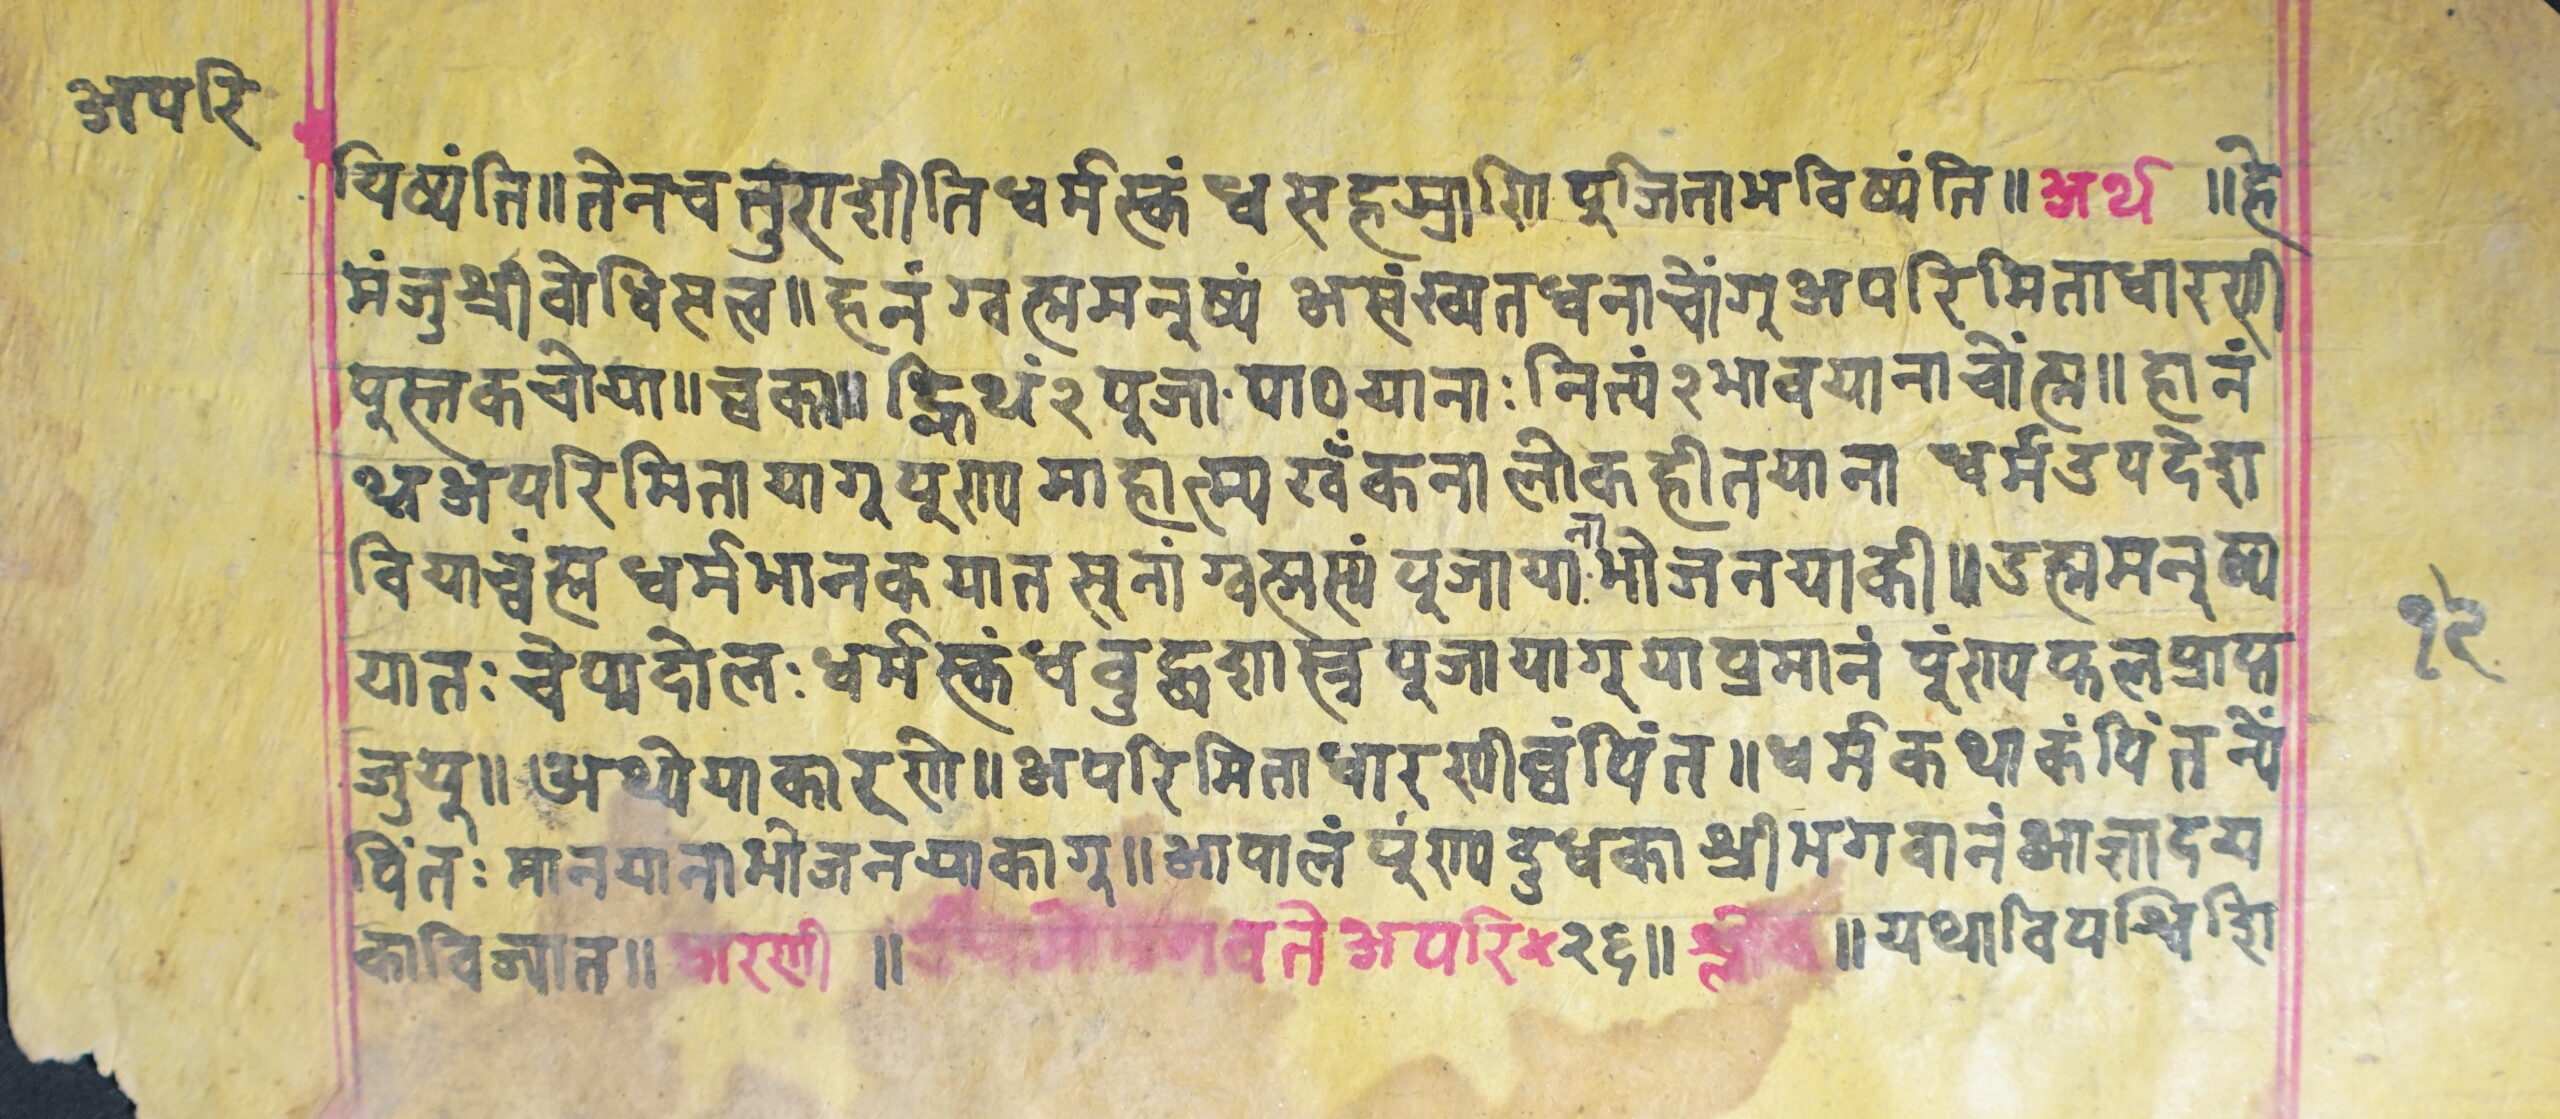 अपरि
यिष्यंति॥तेनचत्तुराशीतिधर्मस्कंधसहस्राणिपुजिताभविष्यंति॥अर्थ ॥हे
मंजुश्रीवोधिसत्व॥हनंग्वह्ममनुष्यं असंख्यातधनाचोंगुअपरिमिताधारणी
पुस्तकचोया॥च्वका॥ह्निथं२पुजा·पाठयानाःनित्यं२भावयानाचोंह्म॥हानं
थ्वअपरिमितायागुपुराणमाहात्म्यखँकनालोकहीतयाना धर्मउपदेश
वियाच्वंह्म धर्मभानकयातसुनांग्वह्मस्यंपुजायानाभोजनयाकी॥उह्ममनुष्य
यातःचेप्यदोलःधर्मस्कंधवुद्धशास्त्रपुजायागुयाप्रमानंपुंराणफलप्राप्त
जुयु॥अथ्येयाकारणे॥अपरिमिताधारणीच्वंपिंत॥धर्मकथाकंपिंतन्यें
पिंतःमानयानाभोजनयाकागु॥आपालंपुंराणदुधकाश्रीभगवानंआज्ञादय
काविज्यात॥धारणी ॥ वतेअपरि×२६॥श्लोक॥यथाविपश्चिशि
१२